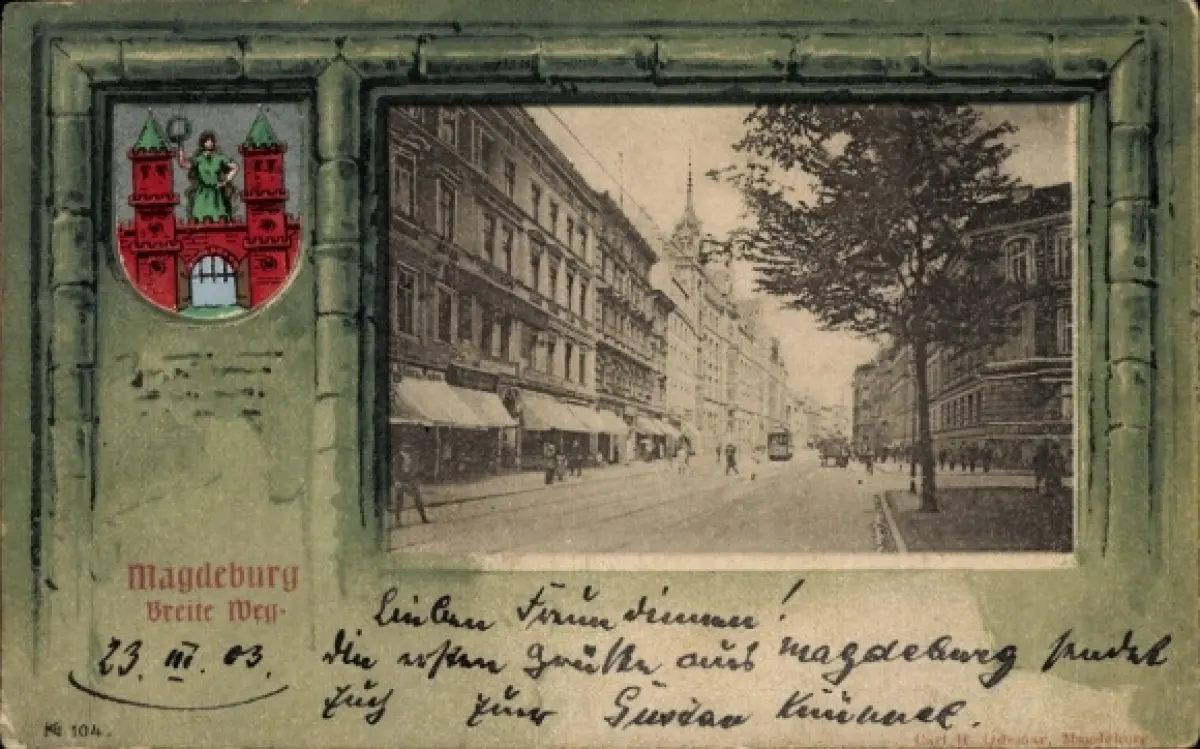 Magdeburg
Breite Weg.
23. III. 03.
Lieben Freundinnen!
die ersten Grüße aus Magdeburg sendet
Euch Euer Gustav
№ 104.
Magdeburg.